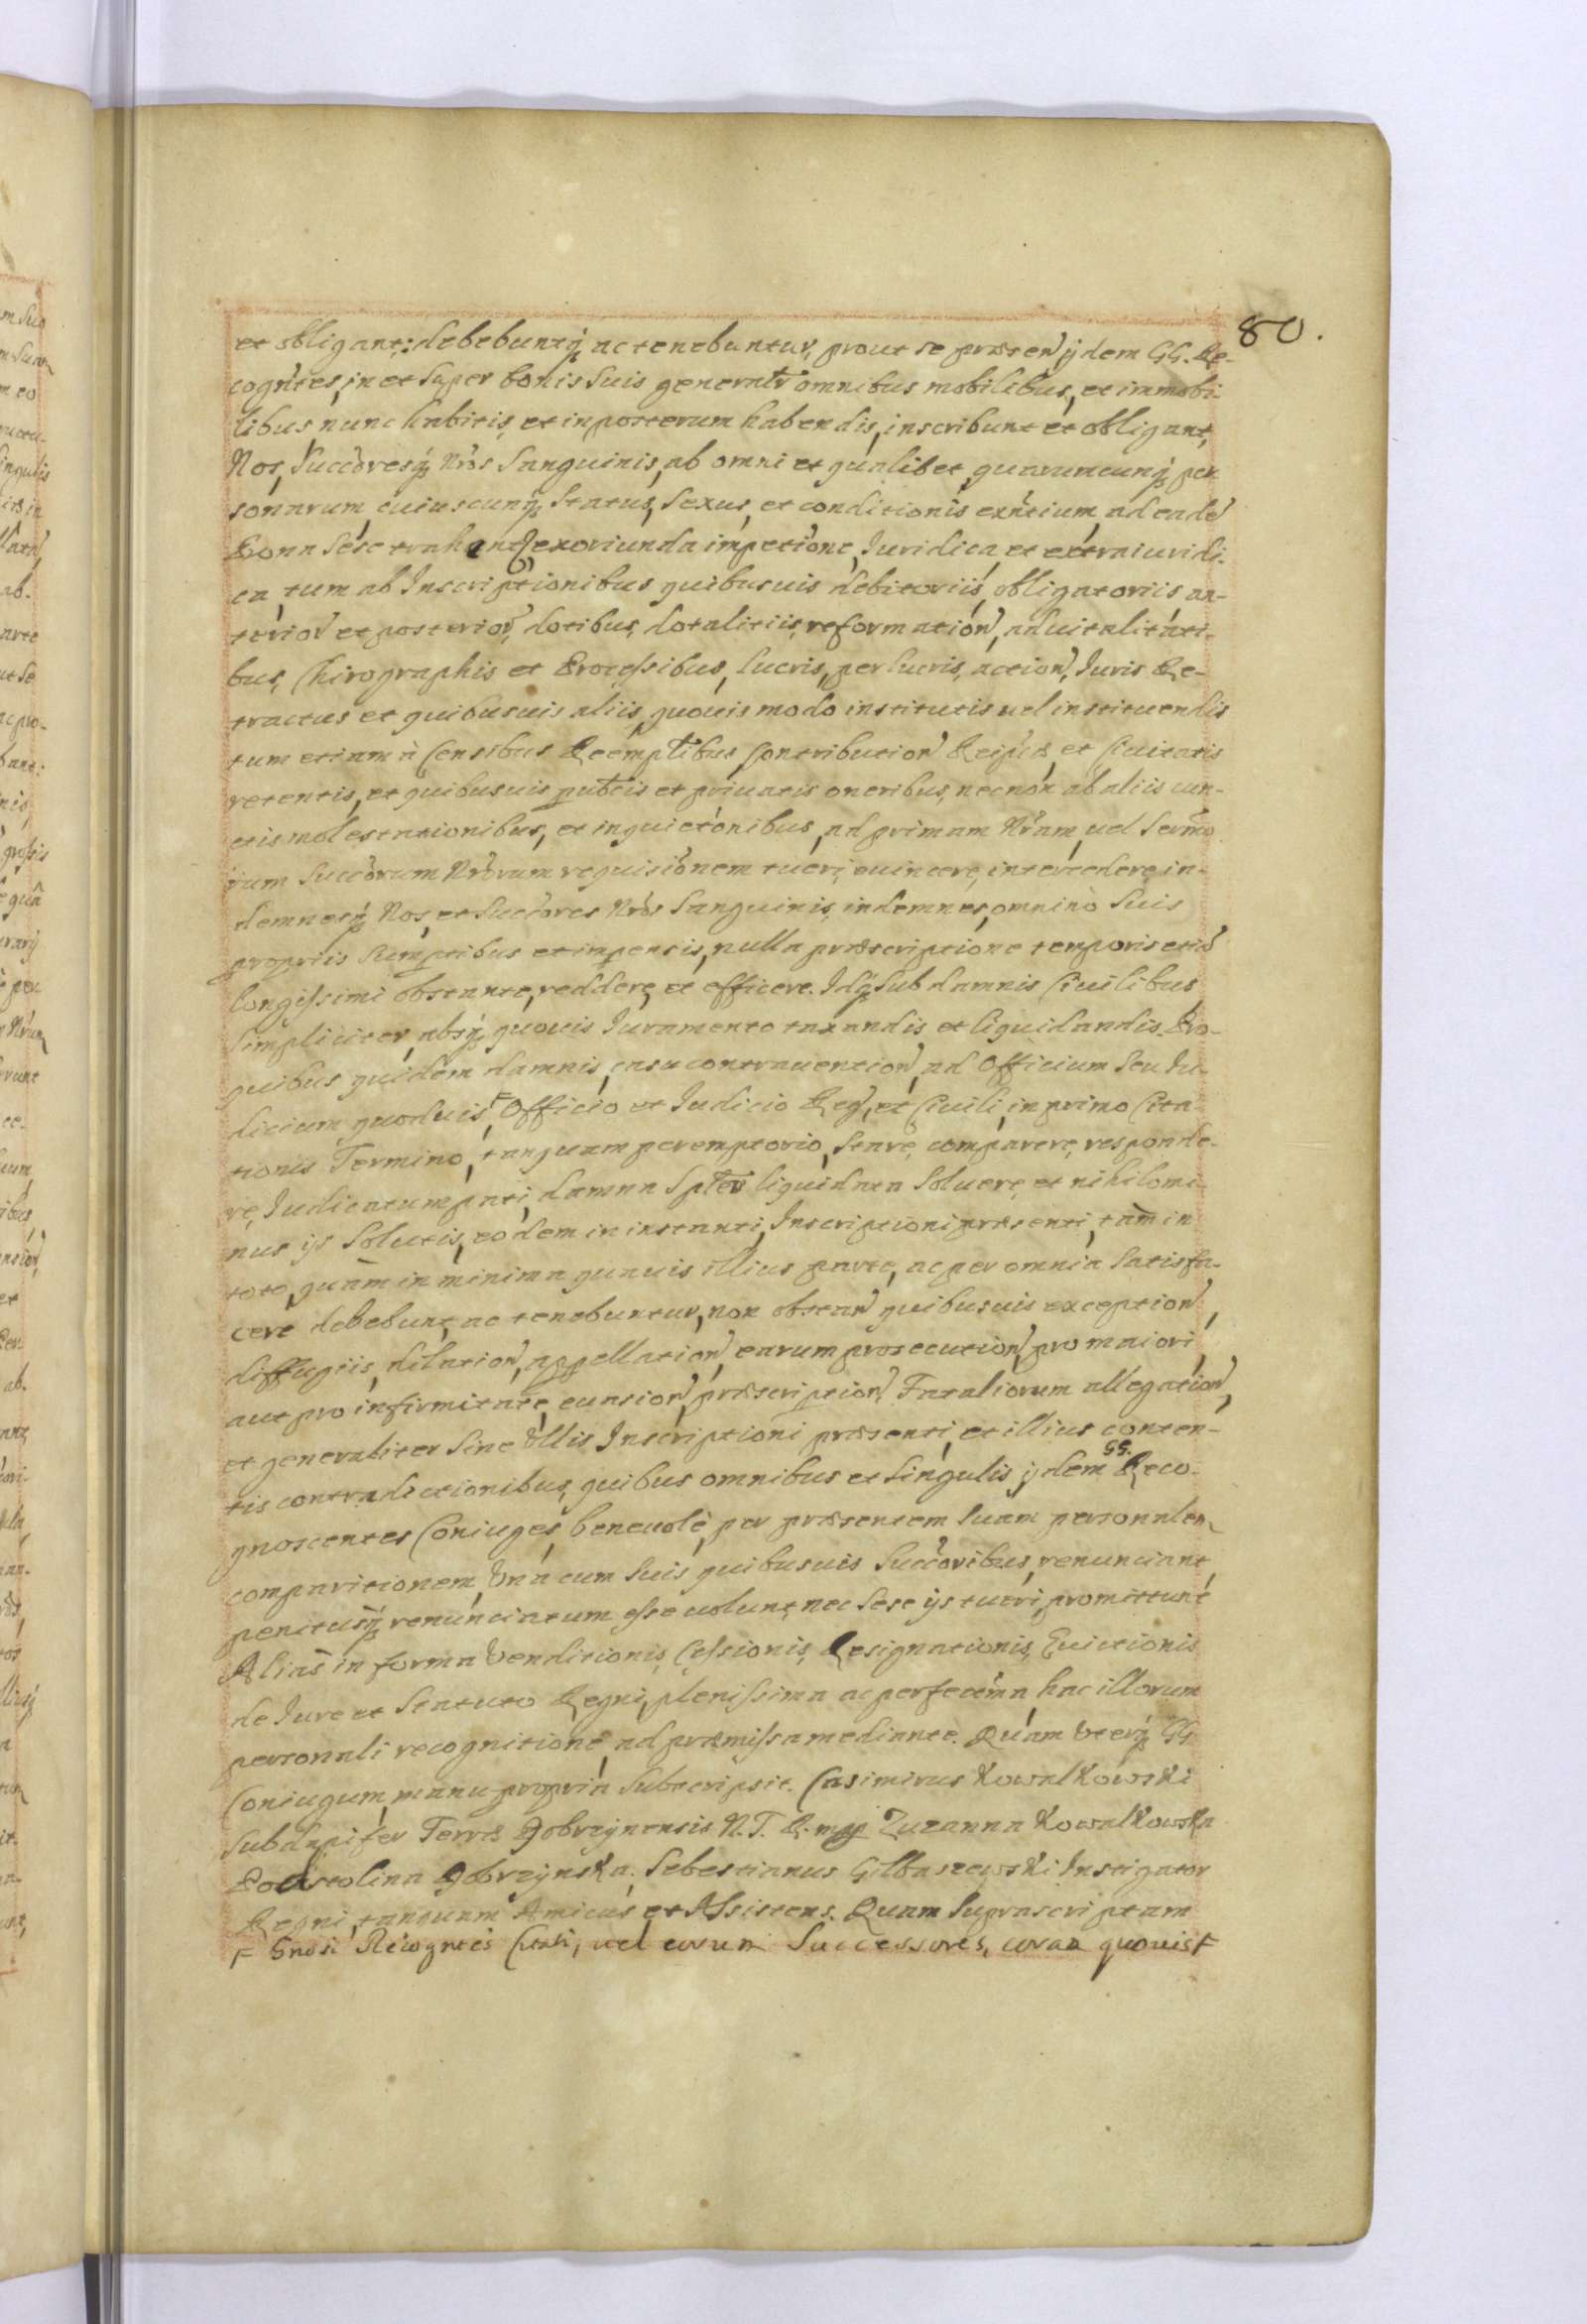 80.
et obligant: debebuntq́ ac tenebuntur, prout se præsen ijdem GG. Re-
cogñtes, in et super bonis suis generalr̃ omnibus mobilibus, et immobi-
libus nunc habitis, et in posterum habendis, inscribunt et obligant,
Nos, Succõresq́ Nr̃os Sanguinis, ab omni et qualibet, quaruncunq́ per-
sonarum, cuiuscunq́ Status, Sexus, et conditionis exñtium, ad eadẽ
Bona sese trahent. exoriunda impetiõne, Iuridica, et extraiuridi-
ca, tum ab Inscriptionibus quibusuis debitoriis, obligatoriis an-
terior̃ et posterior̃, dotibus, dotalitiis, reformatioñ, aduitalitati-
bus, Chirographis et Processibus, lucris, perlucris, actioñ, Iuris Re-
tractus et quibusuis aliis, quouis modo institutis uel instituendis
tum etiam à Censibus Reemptlibus, Contributioñ Reipcæ, et Ciuitatis
retentis, et quibusuis publcis et priuatis oneribus, necnon ab aliis cun-
ctis molestationibus, et inquietõnibus, ad primam Nr̃am, uel sermo
rum Succõrum Nr̃orum requisiõnem tueri, euincere, intercedere, in-
demnesq́ Nos, et Succõres Nr̃os Sanguinis, indemnes, omninò suis
propriis sumptibus et impensis, nulla præscriptione temporis etiã
longissimi obstante, reddere, et efficere. Idq́ sub damnis Ciuilibus
simpliciter, absq́ quouis Iuramento taxandis et liquidandis. Pro-
quibus quidem damnis, casu contrauentioñ, ad Officium seu Iu-
dicium quoduis, F Officio et Iudicio Reg, et Ciuili, in primo Cita-
tionis Termino, tanquam peremptorio, stare, comparere, responde-
re, Iudicatum pati, damna spter̃ liquidata soluere, et nihilomi-
nus ijs solutis, eodem in instanti, Inscriptioni præsenti, tam in
toto, quam in minima quauis illius parte, ac per omnia satisfa-
cere debebunt, ac tenebuntur, non obstañ quibusuis exceptioñ,
diffugiis, dilatioñ, appellatioñ, earum prosecutioñ, pro maiori
aut pro infirmitate, euasioñ, præscriptioñ, Fataliorum allegatioñ,
et generaliter sine Vllis Inscriptioni præsenti, et illius conten-
tis contradictionibus, quibus omnibus et singulis ijdem GG. Reco-
gnoscentes Coniuges, beneuolè, per præsentem suam personalem
comparitionem, Vnà cum suis quibusuis Succõribus, renunciant,
penitusq́ renunciatum esse uolunt, nec sese ijs tueri, promittunt
Alias in forma Venditionis, Cessionis, Resignationis, Euictionis
de Iure et Statuto Regni, plenissima ac perfectĩma hac illorum
personali recognitione ad præmissa mediante. Quam Vterq́ GG
Coniugum, manu propria subscripsit. Casimirus Kowalkowski
Subdapifer Terræ Dobrzynensis N. T. R. mp Zuzanna Kowalkowska
Podstolina Dobrzynska. Sebestianus Gilbaszewski Instigator
Regni, tanquam Amicus et Assistens. Quam suprascriptam
F Gnosi Recogntes Citati, uel eorum Successores, coram quouis F